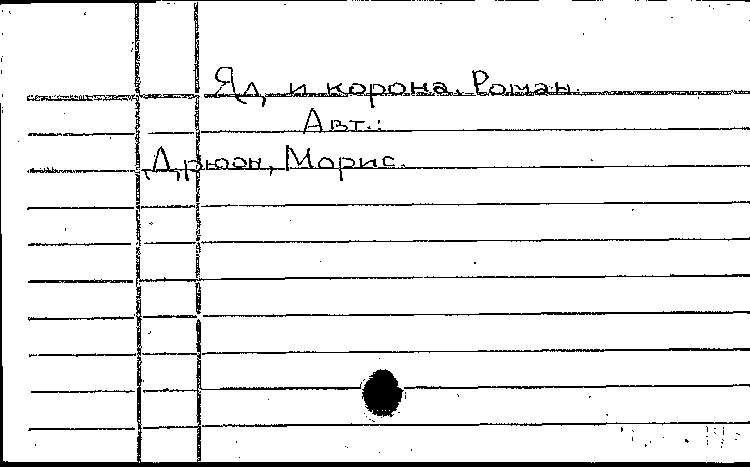 Яд и корона. Роман.
Авт.:
Дрюон, Морис.